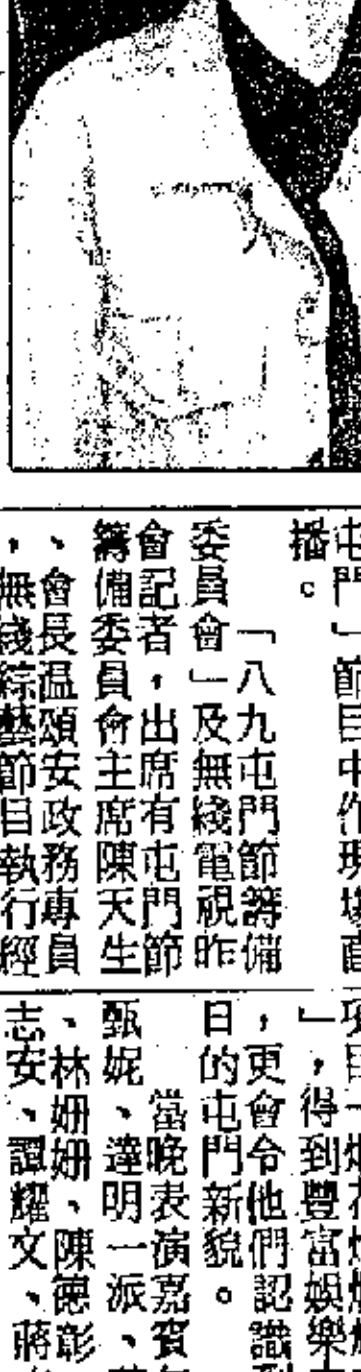 屯門」節目中作現場直
播。
「八九屯門節籌備
委員會」及無綫電視昨
會記者，出席有屯門節
籌備委員會主席陳天生
、會長温頌安政務專員
，無綫綜藝節目執行經
」，得到豐富娛樂
，更會令他們認識
日的屯門新貌。
當晚表演嘉賓
甄妮、達明一派、
、林姍姍、陳德彰
志安、譚耀文、蔣